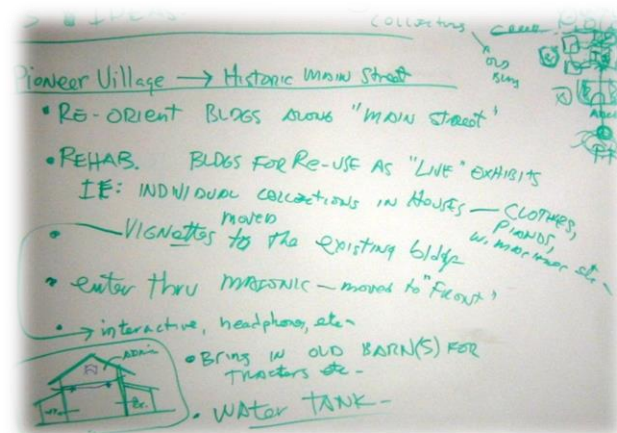 IDEAS.
COLLECTIONS
OLD
BLDG
Pioneer Village → Historic Main Street
• RE-ORIENT BLDGS ALONG "MAIN STREET"
• REHAB. BLDGS FOR RE-USE AS "LIVE" EXHIBITS
IE: INDIVIDUAL COLLECTIONS IN HOUSES — CLOTHES,
PIANOS,
etc -
moved
• VIGNETTES to the existing bldg
• enter thru MASONIC — moved to "FRONT"
• → interactive, headphones, etc -
• Bring IN OLD BARN(S) FOR
TRACTORS etc -
• WATER TANK -